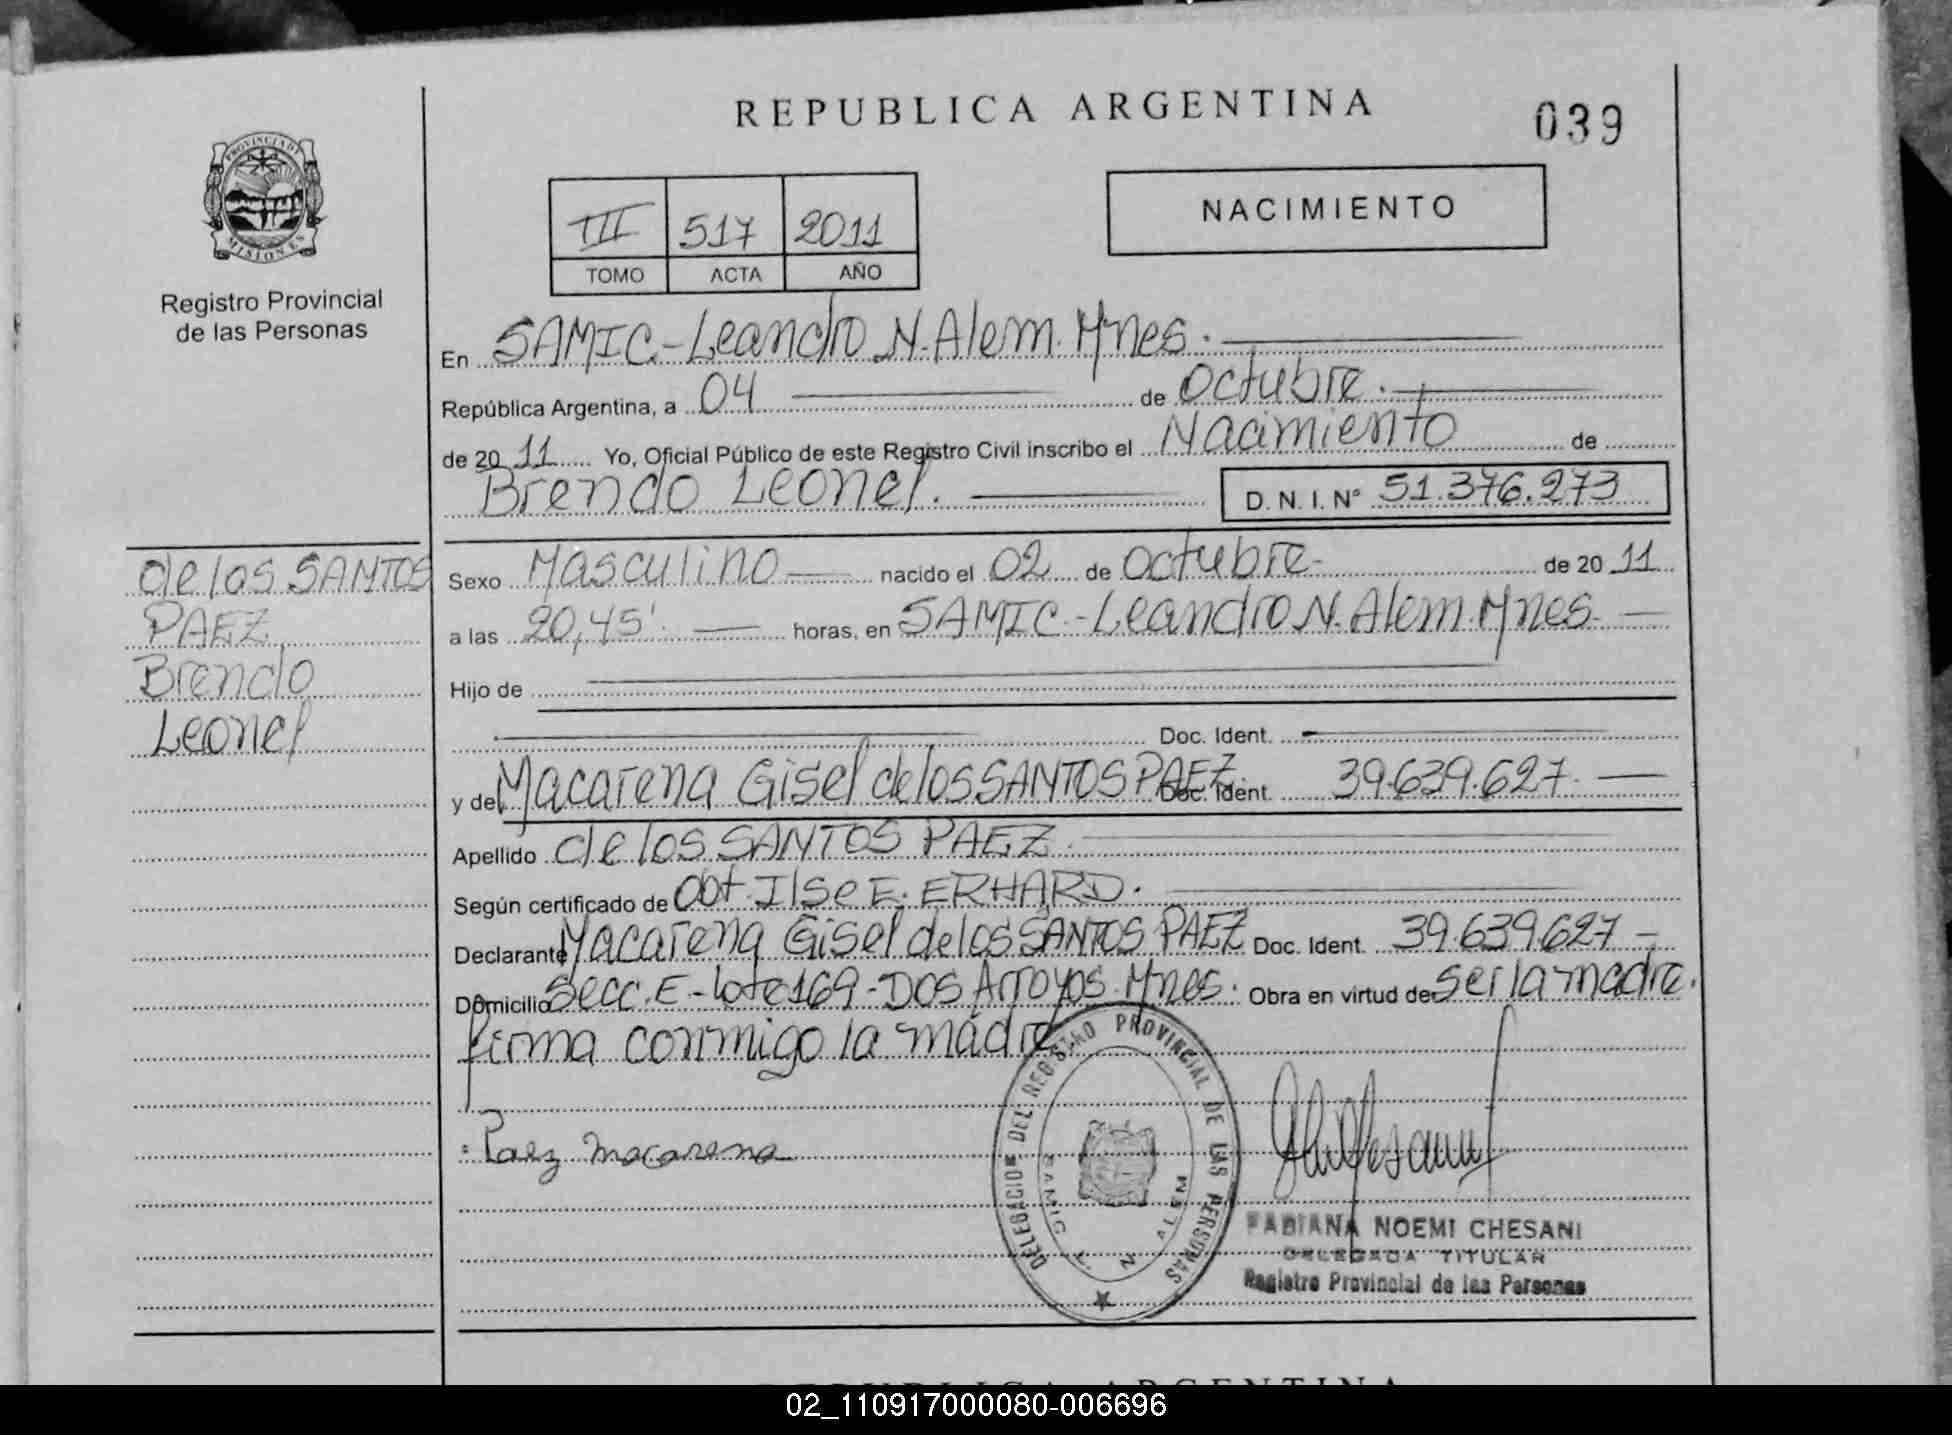 REPUBLICA ARGENTINA
039
PROVINCIA D
MISIONES
Registro Provincial
de las Personas
III 517 2011
TOMO ACTA AÑO
NACIMIENTO
En SAMIC.-Leandro N. Alem. Mnes.
República Argentina, a 04 de Octubre.
de 20 11 Yo, Oficial Público de este Registro Civil inscribo el Nacimiento de
Brendo Leonel. D. N. I. N° 51.376.273
de los SANTOS
PAEZ
Brendo
Leonel
Sexo Masculino nacido el 02 de Octubre- de 20 11
a las 20,45'. horas, en SAMIC.-Leandro N. Alem. Mnes.
Hijo de
Doc. Ident.
y de Macarena Gisel de los SANTOS PAEZ. Doc. Ident. 39.639.627.
Apellido de los SANTOS PAEZ.
Según certificado de Obt. Ilse E. ERHARD.
Declarante Macarena Gisel de los SANTOS PAEZ Doc. Ident. 39.639.627 -
Domicilio Secc. E - Lote 169 - DOS Arroyos. Mnes. Obra en virtud de ser la madre.
firma conmigo la madre
DELEGACION DEL REGISTRO PROVINCIAL DE LAS PERSONAS
SAMIC L. N. ALEM
Paez macarena
FABIANA NOEMI CHESANI
DELEGADA TITULAR
Registro Provincial de las Personas
REPUBLICA ARGENTINA
02_110917000080-006696